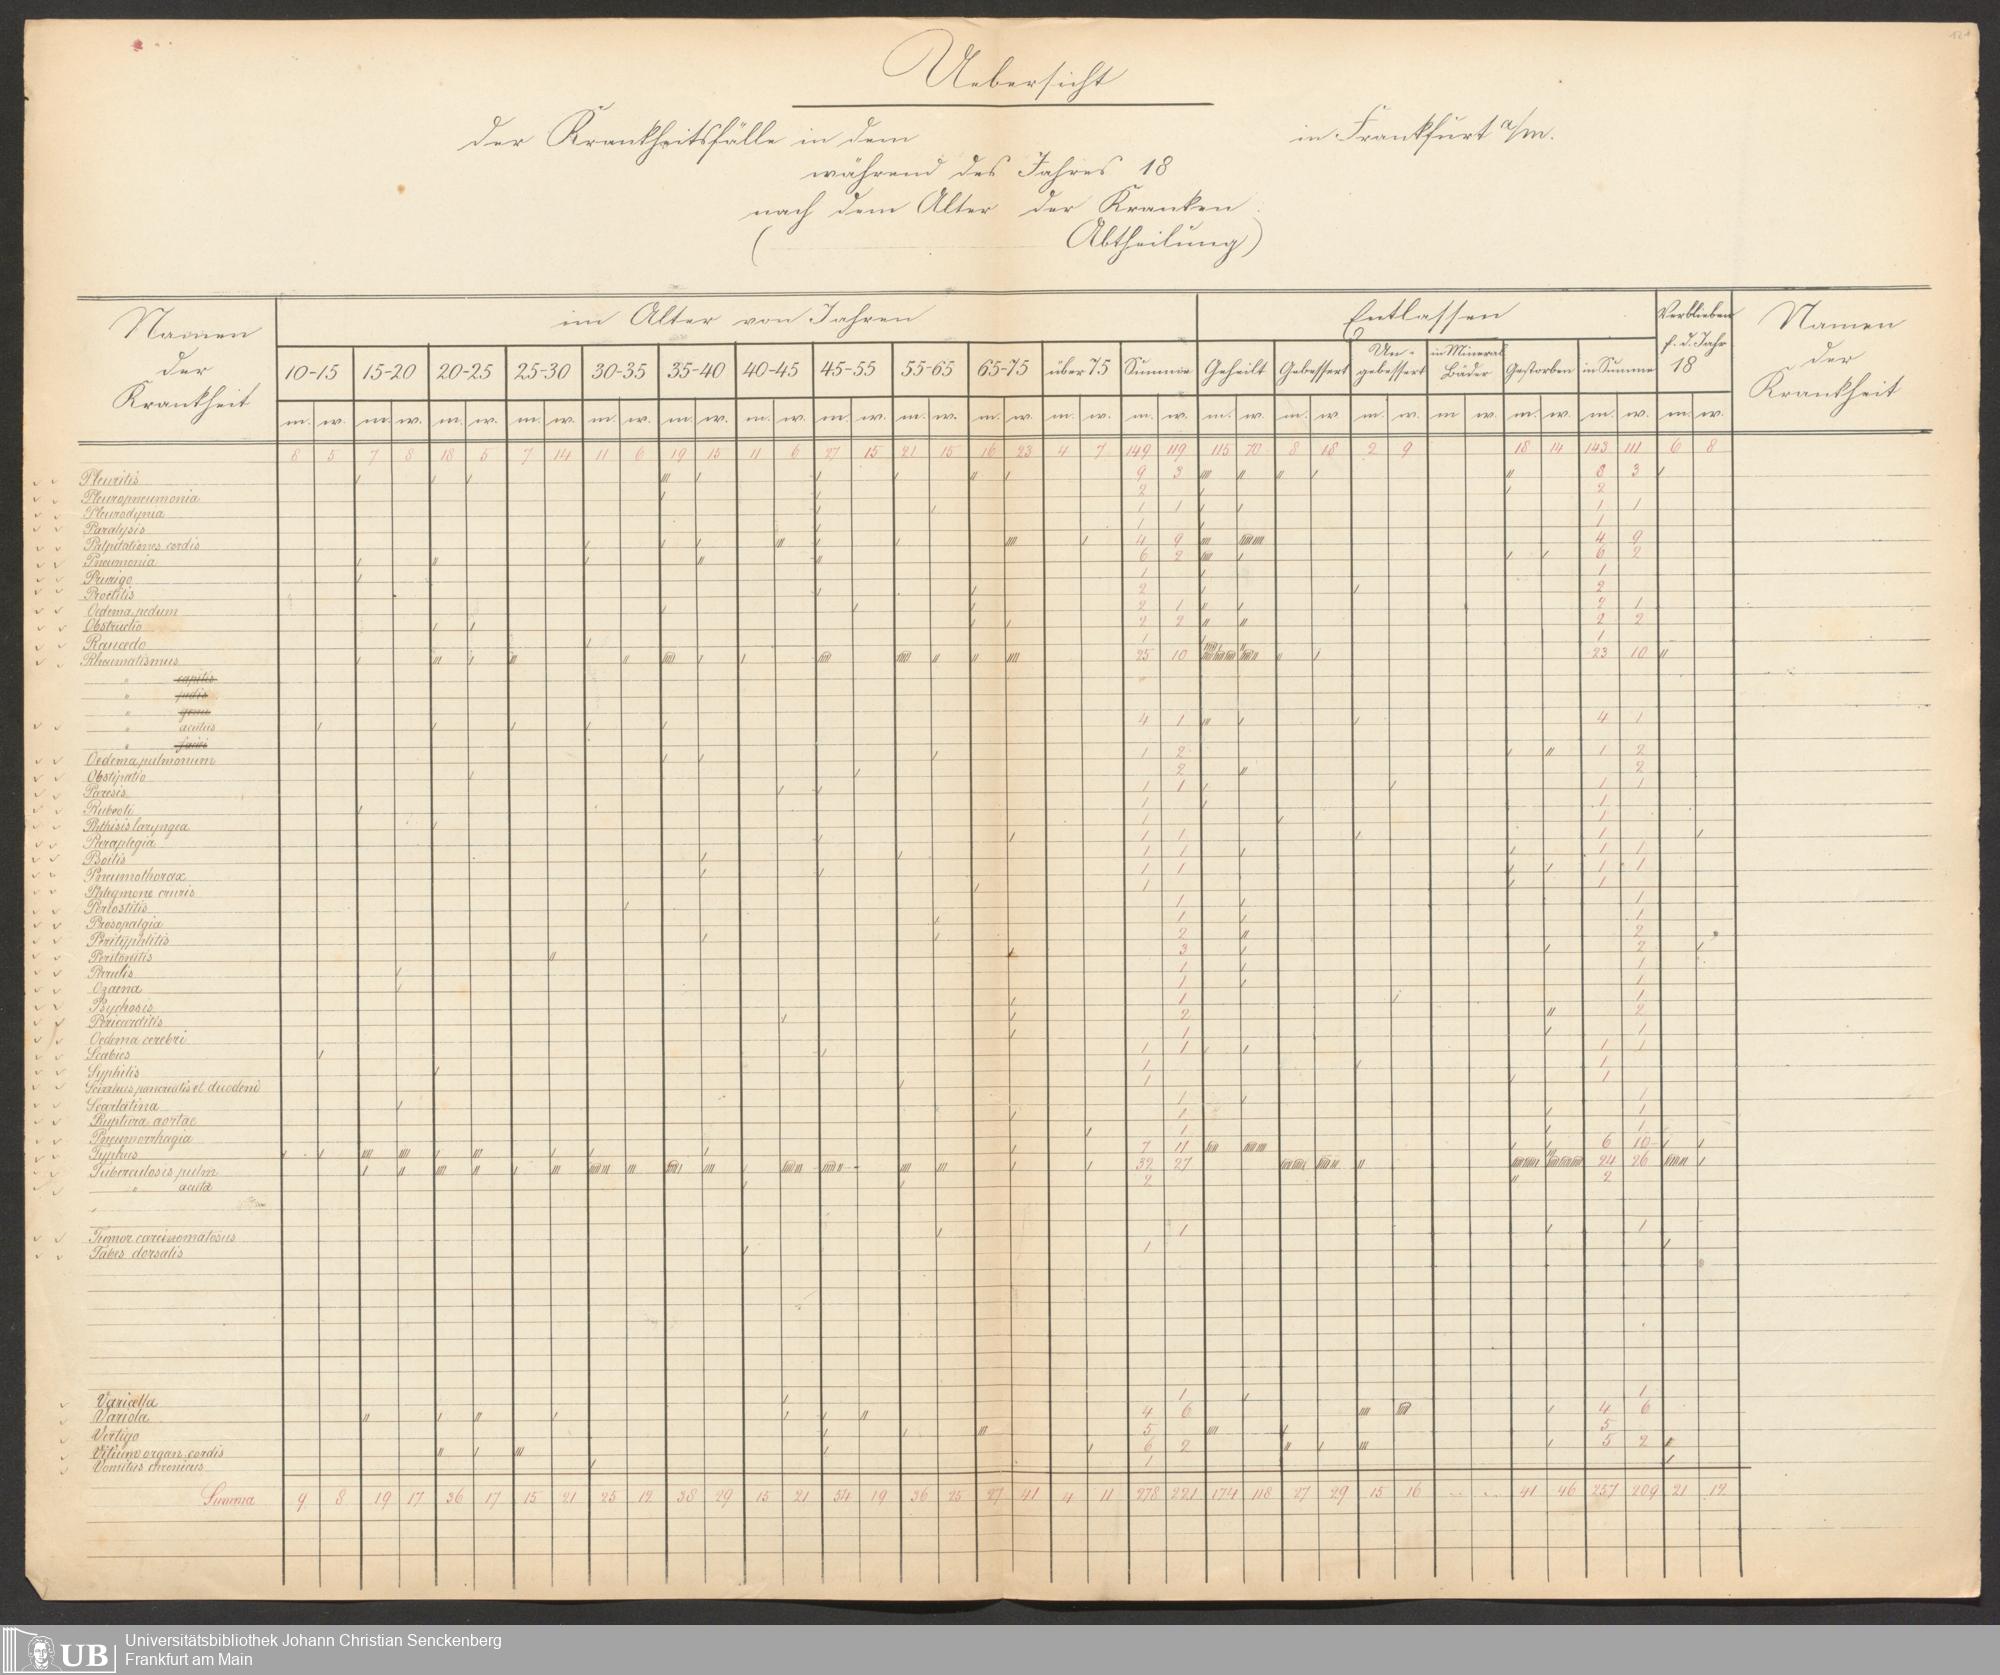 Uebersicht
der Krankheitsfälle in dem in Frankfurt a/m.
während des Jahres 18
nach dem Alter der Kranken.
( Abtheilung)
Namen der Krankheit im Alter von Jahren Entlassen Verblieben f. d. Jahr 18 Namen der Krankheit
10-15 15-20 20-25 25-30 30-35 35-40 40-45 45-55 55-65 65-75 über 75 Summa Geheilt Gebessert Un-gebessert in Mineral Bäder Gestorben in Summa
m. w. m. w. m. w. m. w. m. w. m. w. m. w. m. w. m. w. m. w. m. w. m. w. m. w. m. w m. w. m w. m. w. m. w. m. w.
8 5 7 8 18 5 7 14 11 6 19 15 11 6 27 15 21 15 16 23 4 7 149 119 115 70 8 18 2 9 18 14 143 111 6 8
Pleuritis 9 3 8 3
Pleuropneumonia 2 2
Pleurodynia 1 1 1 1
Paralysis 1 1
Palpitationes cordis 4 9 4 9
Pneumonia 6 2 6 2
Prurigo 1 1
Proctitis 2 2
Oedema pedum 2 1 2 1
Obstructio 2 2 2 2
Raucedo 1 1
Rheumatismus 25 10 23 10
" capitis
" pedis
" genu
" acutus 4 1 4 1
"
Oedema pulmonum 1 2 1 2
Obstipatio 2 2
Paresis 1 1 1 1
Rubeoli 1 1
Phthisis laryngea 1 1
Paraplegia 1 1 1
1 1 1 1
Pneumothorax 1 1 1 1
Phlegmone cruris 1 1
Periostitis 1 1
Prosopalgia 1 1
Perityphlitis 2 2
Peritonitis 3 2
Parulis 1 1
Ozaena 1 1
Psychosis 1 1
Pericarditis 2 2
Oedema cerebri 1 1
Scabies 1 1 1 1
Syphilis 1 1
Scirrhus pancreatis et duodeni 1 1
Scarlatina 1 1
Ruptura aortae 1 1
Pneumorrhagia 1 1
Typhus 7 11 6 10
Tuberculosis pulm 32 27 24 26
" acuta 2 2
Tumor carcinomatosus 1 1
Tabes dorsalis 1
Varicella 1 1
Variola 4 6 4 6
Vertigo 5 5
Vitium organ. cordis 6 2 5 2
Vomitus chronicus 1
Summa 9 8 19 17 36 17 15 21 25 12 38 29 15 21 34 19 36 25 27 41 4 11 278 221 174 118 27 29 15 16 41 46 257 209 21 12
UB Universitätsbibliothek Johann Christian Senckenberg
Frankfurt am Main